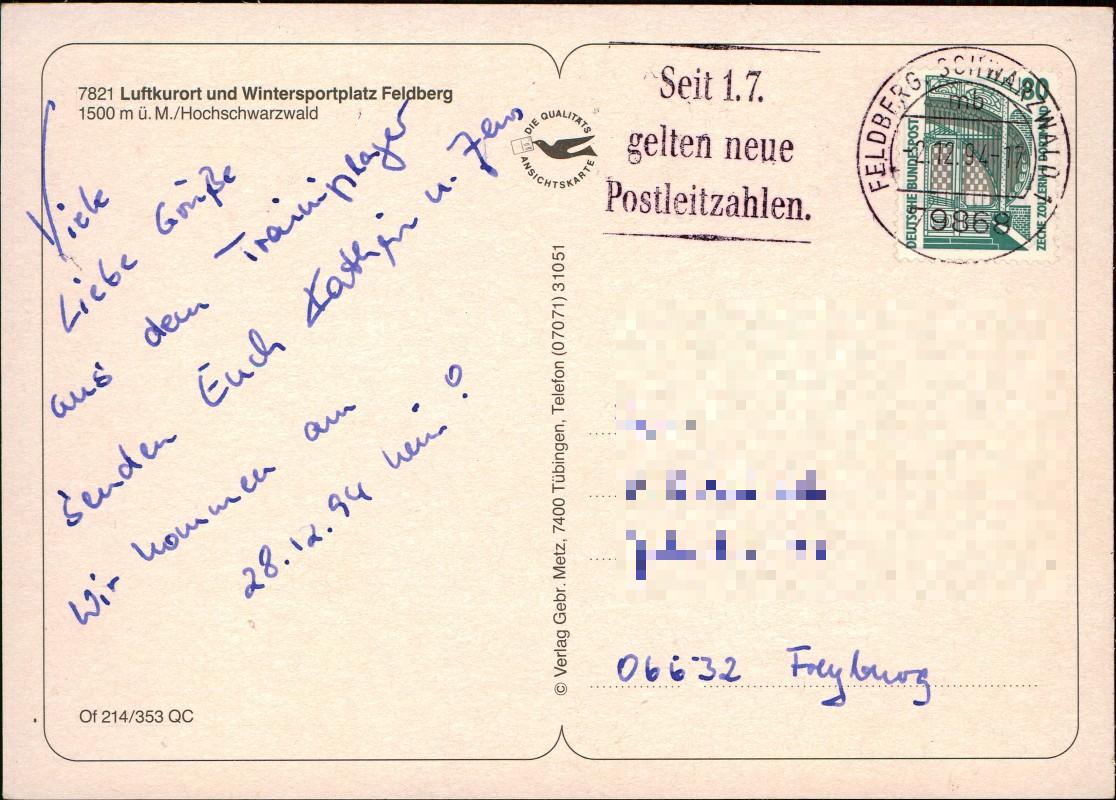 7821 Luftkurort und Wintersportplatz Feldberg
1500 m ü. M./Hochschwarzwald
Viele
Liebe Grüße
aus dem Trainingslager
senden Euch Kathrin u. Jens
Wir kommen am
28.12.94 heim!
Of 214/353 QC
DIE QUALITÄTS
ANSICHTSKARTE
© Verlag Gebr. Metz, 7400 Tübingen, Telefon (07071) 31051
Seit 1.7.
gelten neue
Postleitzahlen.
FELDBERG, SCHWARZWALD 1
mb
12.94-12
79868
80
DEUTSCHE BUNDESPOST
ZECHE ZOLLERN II DORTMUND
06632 Freyburg